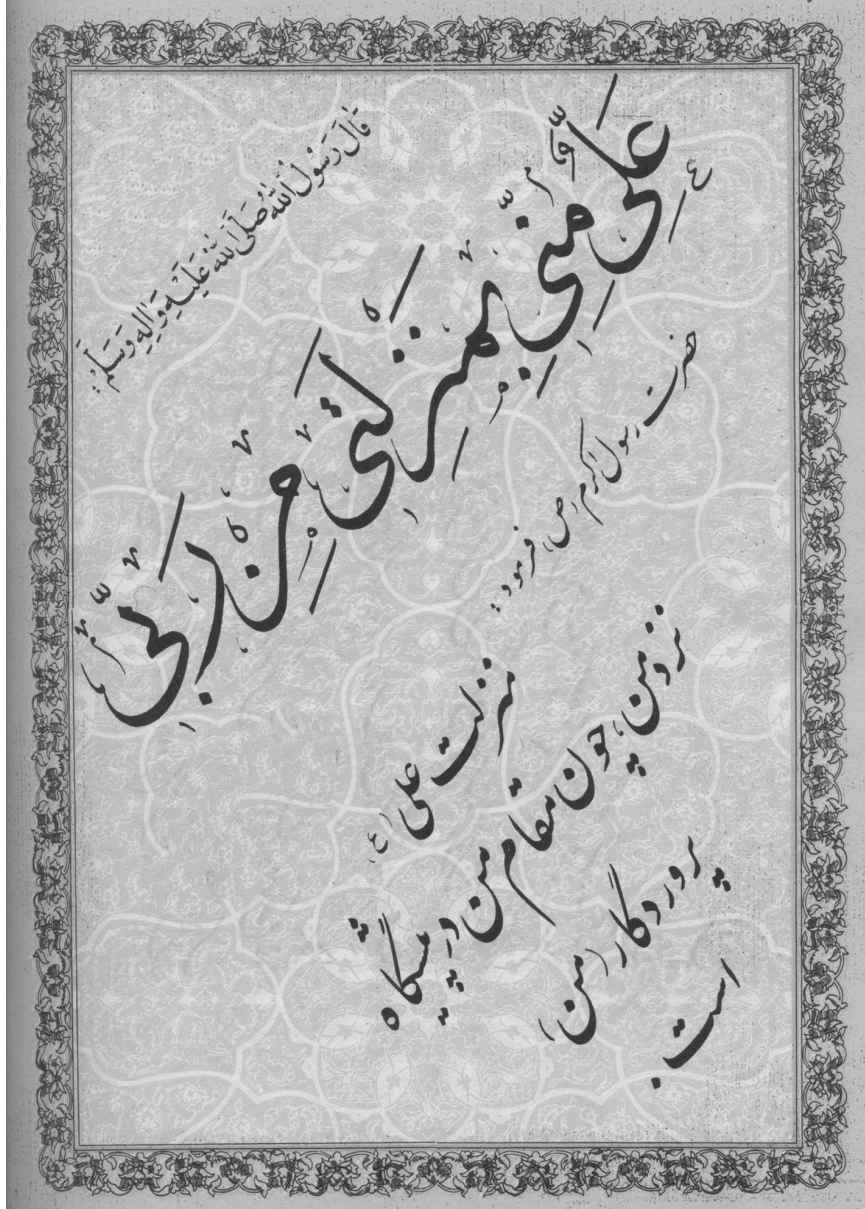 قَالَ رَسُولُ اللّٰهِ صَلَّی اللّٰهُ عَلَیْهِ وَاٰلِهِ وَسَلَّمَ:
عَلِیٌّ (ع) مِنّی بِمَنْزِلَتی مِنْ رَبّی
حضرت رسول اکرم (ص) فرمود:
منزلت علی (ع)
نزد من، چون مقام من در پیشگاه
پروردگار (من)
است.